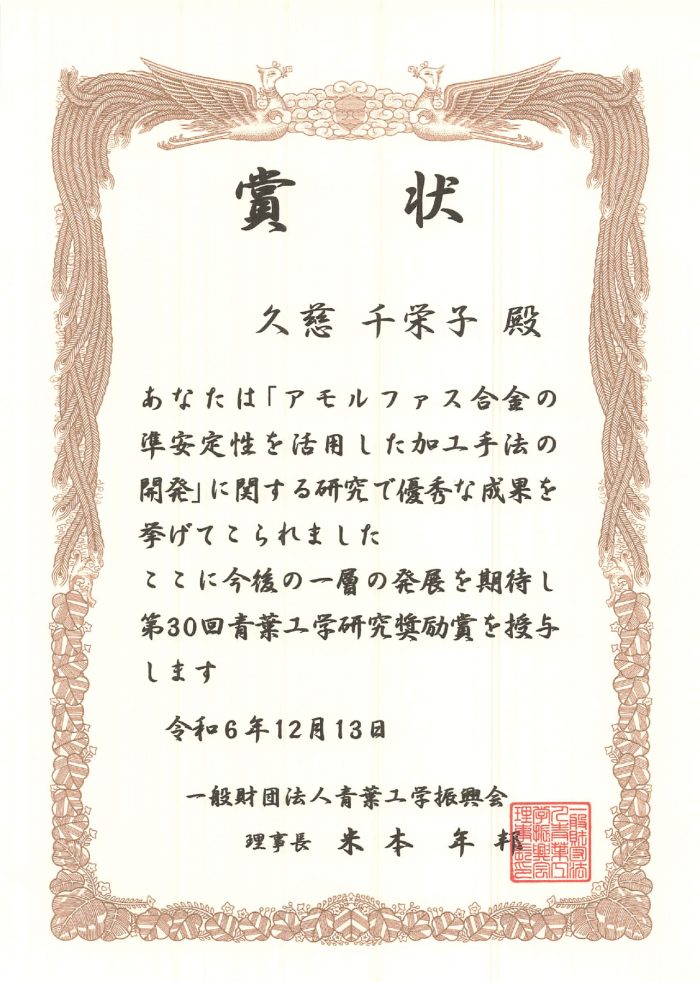 賞 状
久慈 千栄子 殿
あなたは「アモルファス合金の
準安定性を活用した加工手法の
開発」に関する研究で優秀な成果を
挙げてこられました
ここに今後の一層の発展を期待し
第30回青葉工学研究奨励賞を授与
します
令和6年12月13日
一般財団法人青葉工学振興会
理事長 米本 年邦
一般財団法
人青葉工
学振興会
理事長印